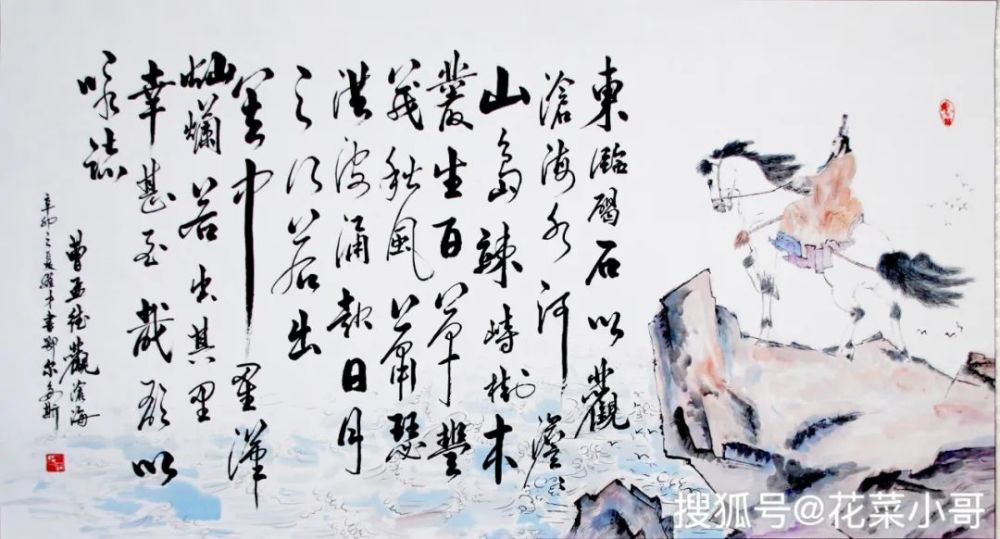 東臨碣石以觀
滄海水何澹〻
山島竦峙樹木
叢生百草豐
茂秋風蕭瑟
洪波涌起日月
之行若出
其中星漢
灿爛若出其里
幸甚至哉歌以
咏誌
曹孟德觀滄海
辛卯之夏耀才書鄂尔多斯
搜狐号@花菜小哥